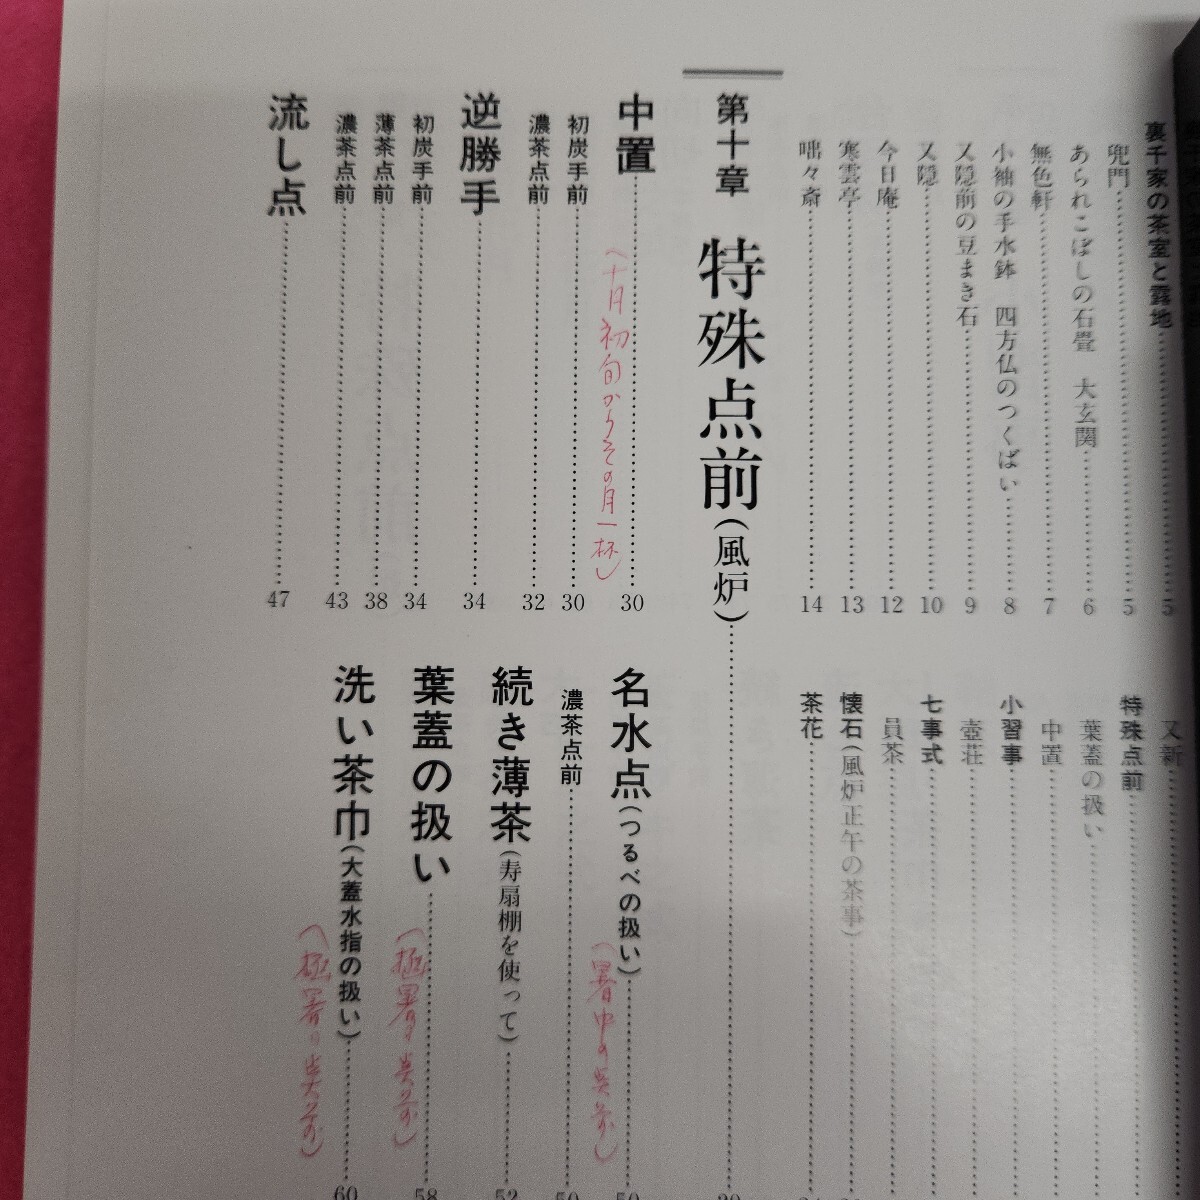 裏千家の茶室と露地 5
兜門 5
あられこぼしの石畳 大玄関 6
無色軒 7
小袖の手水鉢 四方仏のつくばい 8
又隠前の豆まき石 9
又隠 10
今日庵 12
寒雲亭 13
咄々斎 14
又新
特殊点前
葉蓋の扱い
中置
小習事
壺荘
七事式
員茶
懐石(風炉正午の茶事)
茶花
第十章 特殊点前(風炉)
中置 30
(十月初旬からその月一杯)
初炭手前 30
濃茶点前 32
逆勝手 34
初炭手前 34
薄茶点前 38
濃茶点前 43
流し点 47
名水点(つるべの扱い) 50
(暑中の点前)
濃茶点前 50
続き薄茶(寿扇棚を使って) 52
葉蓋の扱い 58
(極暑の点前)
洗い茶巾(大蓋水指の扱い) 60
(極暑の点前)